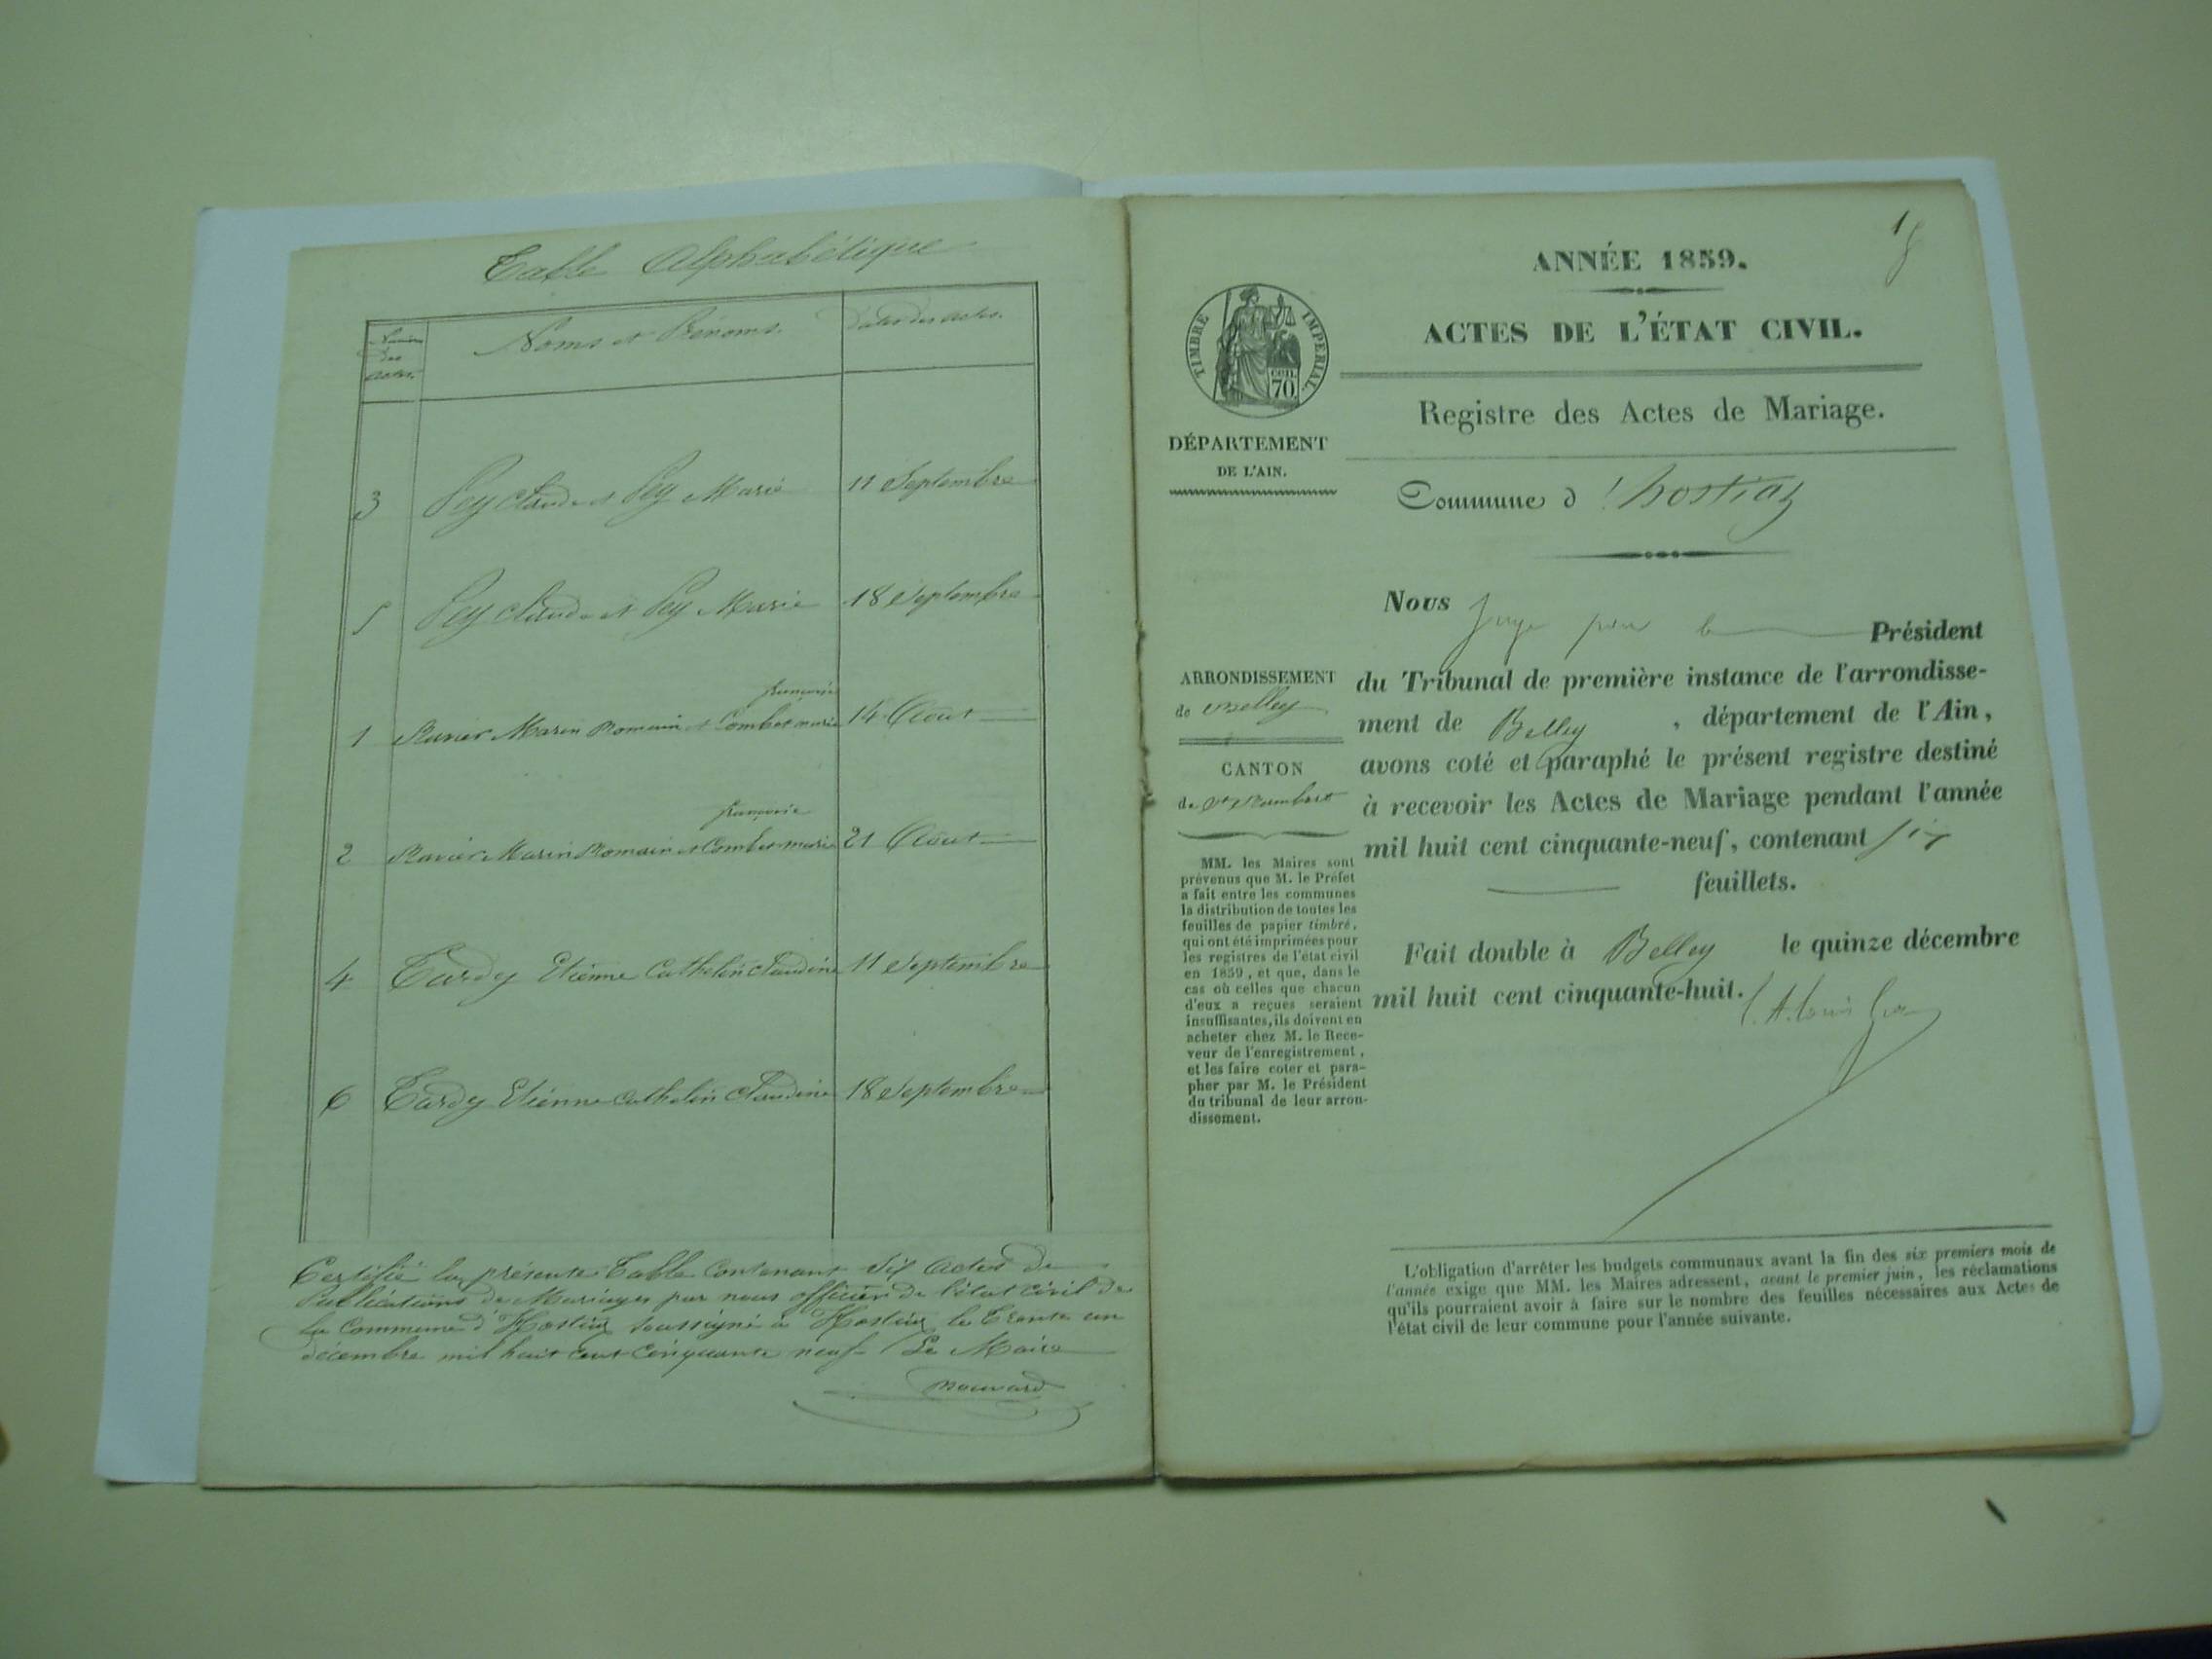 Table Alphabétique
Numéros des actes.
Noms et Prénoms.
Dates des actes.
3 Pey Claude et Pey Marie 11 Septembre
5 Pey Claude et Pey Marie 18 Septembre
françoise
1 Ravier Marin Romain et Combet marie 14 Aout
françoise
2 Ravier Marin Romain et Combet marie 21 Aout
4 Tardy Etienne Cathelin Claudine 11 Septembre
6 Tardy Etienne Cathelin Claudine 18 Septembre
Certifié la présente Table Contenant Six Actes de
Publications de Mariages par nous officier de l'état civil de
la Commune d'Hostiaz soussigné à Hostiaz le Trente un
décembre mil huit cent cinquante neuf Le Maire
1
ANNÉE 1859.
ACTES DE L'ÉTAT CIVIL.
Registre des Actes de Mariage.
TIMBRE IMPÉRIAL
CEN. 70.
DÉPARTEMENT
DE L'AIN.
Commune d'hostiaz
Nous Juge pour le Président
du Tribunal de première instance de l'arrondisse-
ment de Belley, département de l'Ain,
avons coté et paraphé le présent registre destiné
à recevoir les Actes de Mariage pendant l'année
mil huit cent cinquante-neuf, contenant six
feuillets.
Fait double à Belley le quinze décembre
mil huit cent cinquante-huit.
ARRONDISSEMENT
de Belley
CANTON
de St Rambert
MM. les Maires sont
prévenus que M. le Préfet
a fait entre les communes
la distribution de toutes les
feuilles de papier timbré,
qui ont été imprimées pour
les registres de l'état civil
en 1859, et que, dans le
cas où celles que chacun
d'eux a reçues seraient
insuffisantes, ils doivent en
acheter chez M. le Rece-
veur de l'enregistrement,
et les faire coter et para-
pher par M. le Président
du tribunal de leur arron-
dissement.
L'obligation d'arrêter les budgets communaux avant la fin des six premiers mois de
l'année exige que MM. les Maires adressent, avant le premier juin, les réclamations
qu'ils pourraient avoir à faire sur le nombre des feuilles nécessaires aux Actes de
l'état civil de leur commune pour l'année suivante.